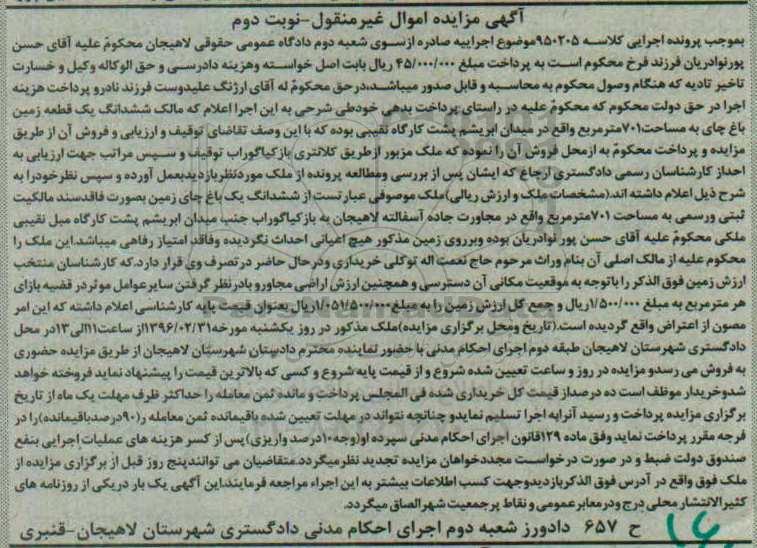 آگهی مزایده اموال غیرمنقول-نوبت دوم
بموجب پرونده اجرایی کلاسه ۹۵۰۲۰۵موضوع اجراییه صادره ازسوی شعبه دوم دادگاه عمومی حقوقی لاهیجان محکومٌ علیه آقای حسن
پورنوادریان فرزند فرخ محکوم است به پرداخت مبلغ ۴۵/۰۰۰/۰۰۰ ریال بابت اصل خواسته وهزینه دادرسی و حق الوکاله وکیل و خسارت
تاخیر تادیه که هنگام وصول محکوم به محاسبه و قابل صدور میباشد،درحق محکومٌ له آقای ارژنگ علیدوست فرزند نادرو پرداخت هزینه
اجرا در حق دولت محکوم که محکومٌ علیه در راستای پرداخت بدهی خودطی شرحی به این اجرا اعلام که مالک ششدانگ یک قطعه زمین
باغ چای به مساحت۷۰۱مترمربع واقع در میدان ابریشم پشت کارگاه نقیبی بوده که با این وصف تقاضای توقیف و ارزیابی و فروش آن از طریق
مزایده و پرداخت محکومٌ به ازمحل فروش آن را نموده که ملک مزبور ازطریق کلانتری بازکیاگوراب توقیف و سپس مراتب جهت ارزیابی به
احداز کارشناسان رسمی دادگستری ارجاع که ایشان پس از بررسی ومطالعه پرونده از ملک موردنظربازدیدبعمل آورده و سپس نظرخودرا به
شرح ذیل اعلام داشته اند.(مشخصات ملک و ارزش ریالی)ملک موصوفی عبارتست از ششدانگ یک باغ چای زمین بصورت فاقدسند مالکیت
ثبتی ورسمی به مساحت ۷۰۱مترمربع واقع در مجاورت جاده آسفالته لاهیجان به بازکیاگوراب جنب میدان ابریشم پشت کارگاه مبل نقیبی
ملکی محکومٌ علیه آقای حسن پور نوادریان بوده وبرروی زمین مذکور هیچ اعیانی احداث نگردیده وفاقد امتیاز رفاهی میباشد.این ملک را
محکوم علیه از مالک اصلی آن بنام وراث مرحوم حاج نعمت اله توکلی خریداری ودرحال حاضر درتصرف وی قرار دارد.که کارشناسان منتخب
ارزش زمین فوق الذکر را باتوجه به موقعیت مکانی آن دسترسی و همچنین ارزش اراضی مجاورو بادرنظر گرفتن سایرعوامل موثردر قضیه بازای
هر مترمربع به مبلغ ۱/۵۰۰/۰۰۰ریال و جمع کل ارزش زمین را به مبلغ۱/۰۵۱/۵۰۰/۰۰۰ریال بعنوان قیمت پایه کارشناسی اعلام داشته که این امر
مصون از اعتراض واقع گردیده است.(تاریخ ومحل برگزاری مزایده)ملک مذکور در روز یکشنبه مورخه۱۳۹۶/۰۲/۳۱از ساعت۱۱الی۱۳در محل
دادگستری شهرستان لاهیجان طبقه دوم اجرای احکام مدنی با حضور نماینده محترم دادستان شهرستان لاهیجان از طریق مزایده حضوری
به فروش می رسدو مزایده در روز و ساعت تعیین شده شروع و از قیمت پایه شروع و کسی که بالاترین قیمت را پیشنهاد نماید فروخته خواهد
شدوخریدار موظف است ده درصداز قیمت کل خریداری شده فی المجلس پرداخت و مانده ثمن معامله را حداکثر ظرف مهلت یک ماه از تاریخ
برگزاری مزایده پرداخت و رسید آنرابه اجرا تسلیم نمایدو چنانچه نتواند در مهلت تعیین شده باقیمانده ثمن معامله ر(۹۰درصدباقیمانده)را در
فرجه مقرر پرداخت نماید وفق ماده ۱۲۹قانون اجرای احکام مدنی سپرده او(وجه۱۰درصد واریزی)پس از کسر هزینه های عملیات اجرایی بنفع
صندوق دولت ضبط و در صورت درخواست مجددخواهان مزایده تجدید نظرمیگردد.متقاضیان می توانندپنج روز قبل از برگزاری مزایده از
ملک فوق واقع در آدرس فوق الذکربازدیدوجهت کسب اطلاعات بیشتر به این اجراء مراجعه فرمایند.این آگهی یک بار دریکی از روزنامه های
کثیرالانتشار محلی درج ودرمعابرعمومی و نقاط پرجمعیت شهرالصاق میگردد.
ح ۶۵۷ دادورز شعبه دوم اجرای احکام مدنی دادگستری شهرستان لاهیجان-قنبری